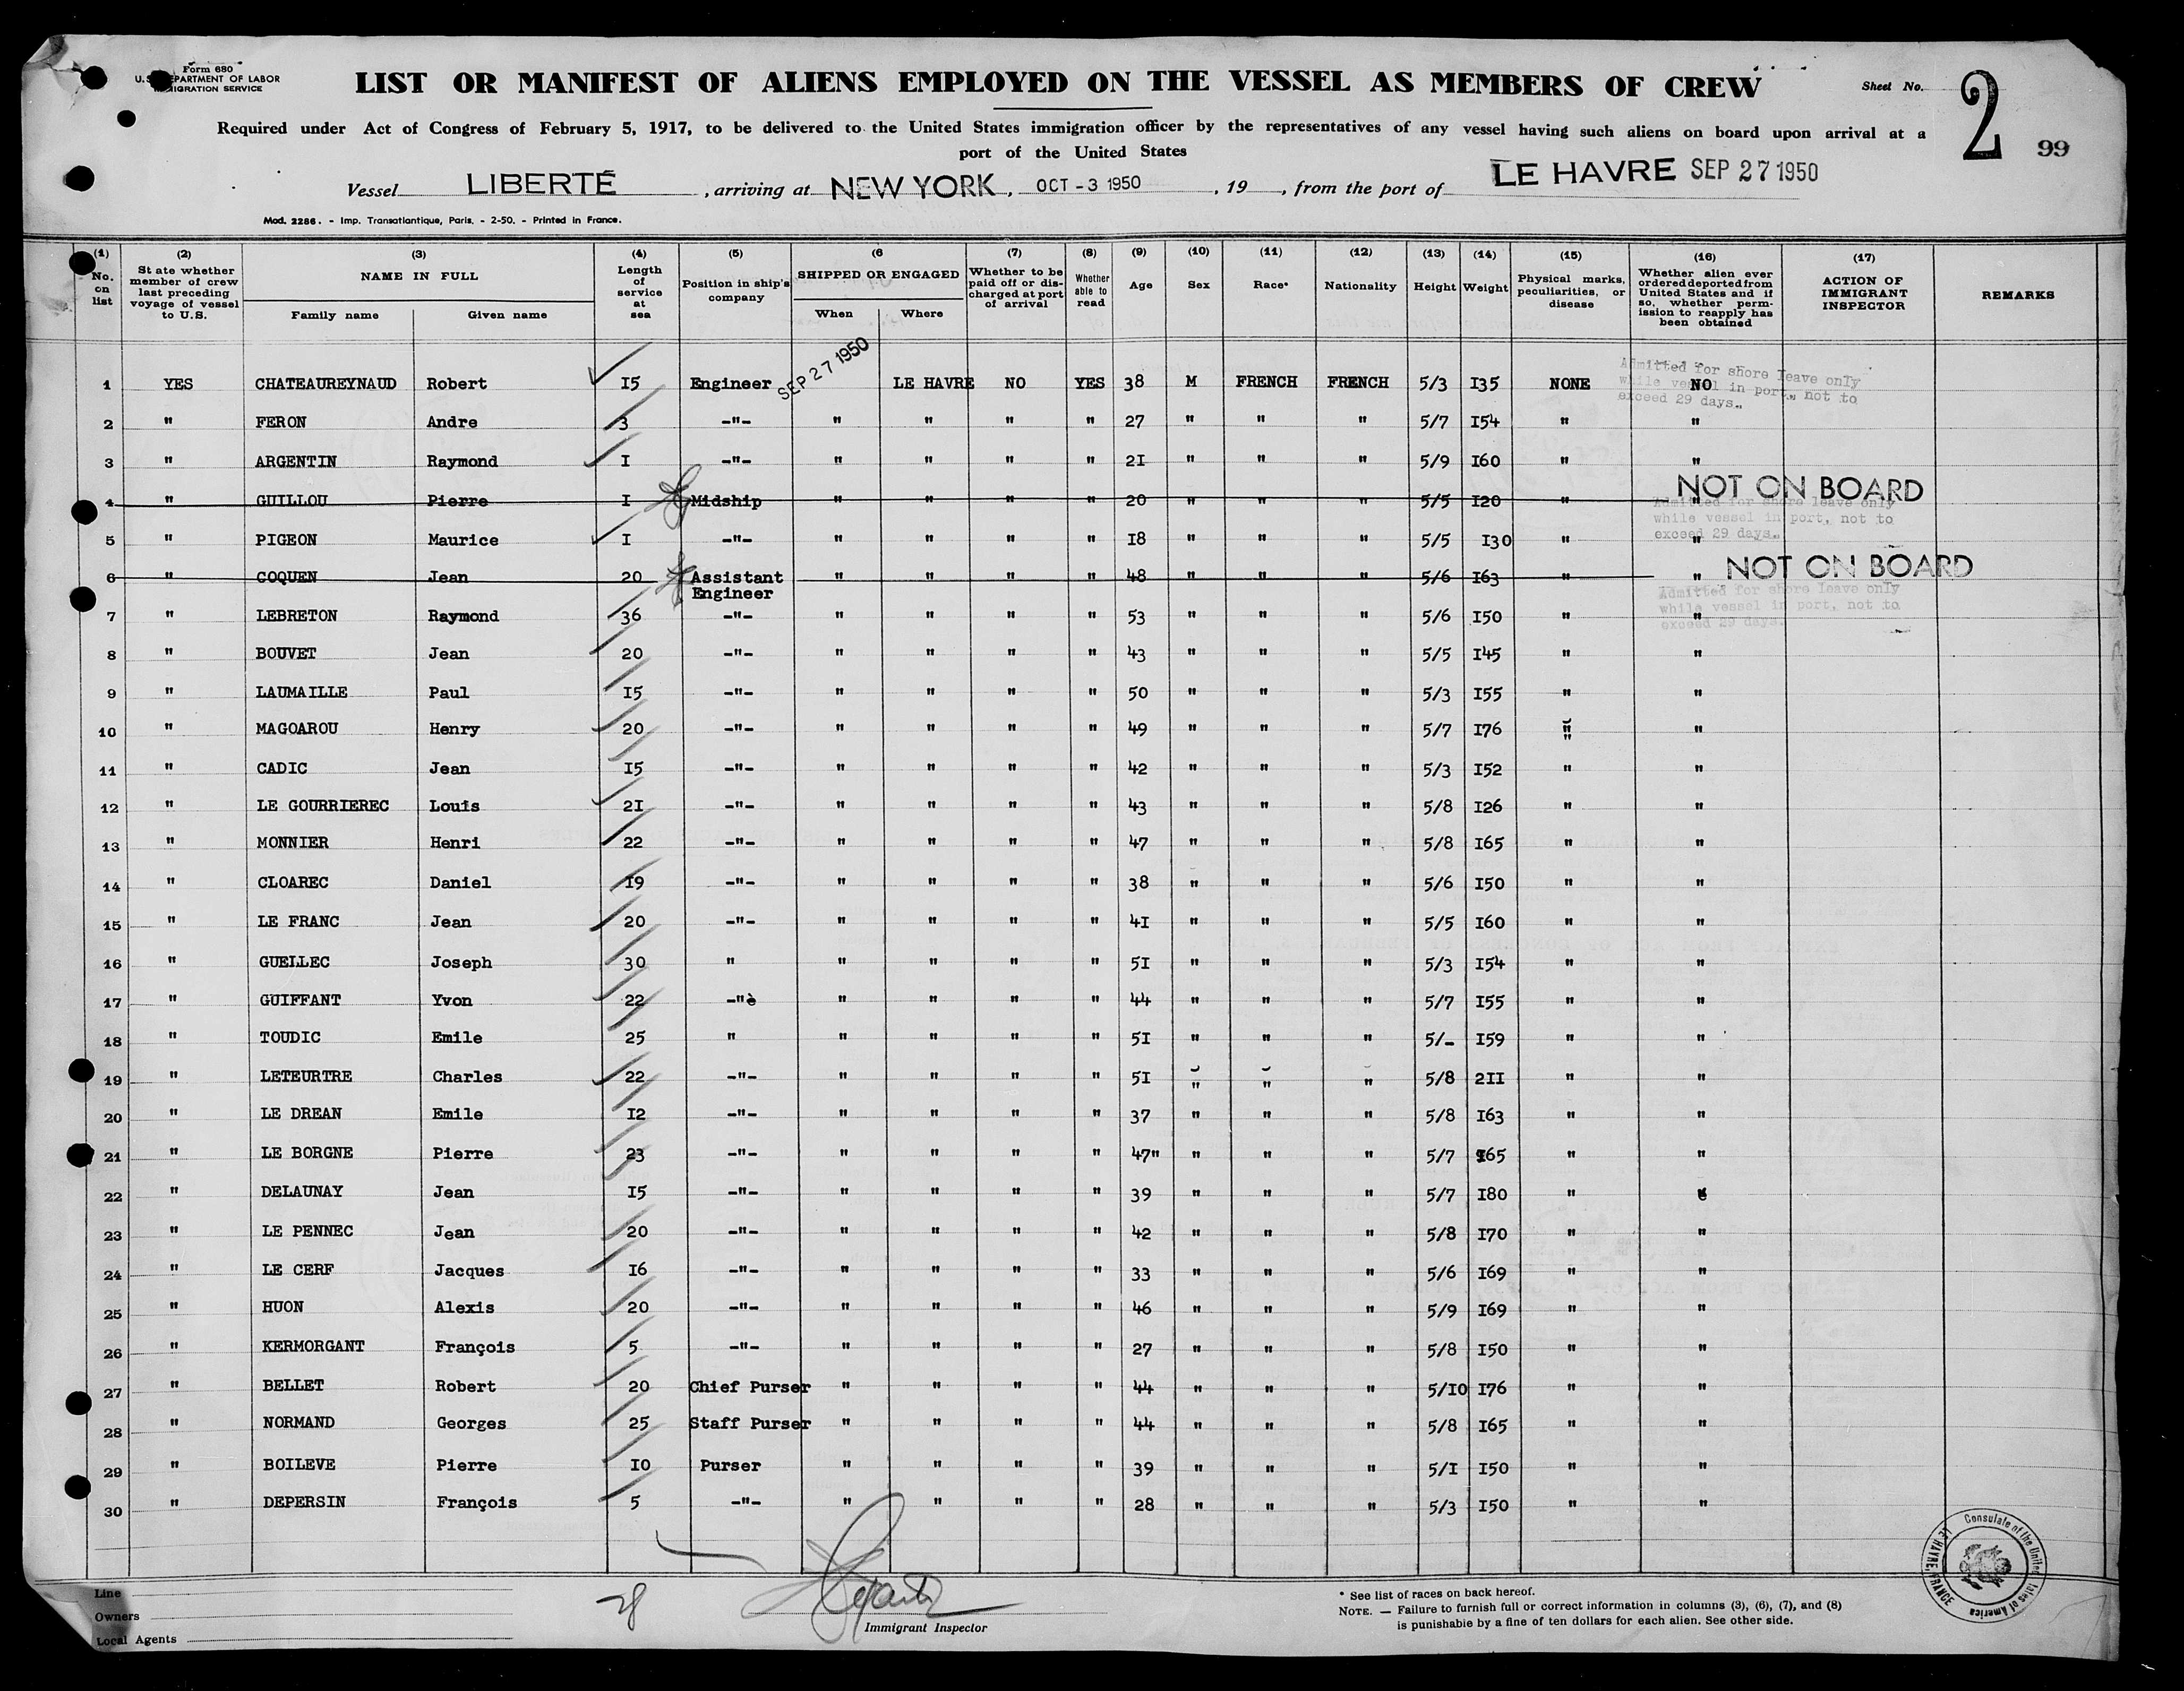 Form 680
U. S. DEPARTMENT OF LABOR
IMMIGRATION SERVICE
LIST OR MANIFEST OF ALIENS EMPLOYED ON THE VESSEL AS MEMBERS OF CREW
Sheet No. 2
99
Required under Act of Congress of February 5, 1917, to be delivered to the United States immigration officer by the representatives of any vessel having such aliens on board upon arrival at a
port of the United States
Vessel LIBERTÉ, arriving at NEW YORK, OCT - 3 1950, 19, from the port of LE HAVRE SEP 27 1950
Mod. 2286. - Imp. Transatlantique, Paris. - 2-50. - Printed in France.
(1) No. on list (2) State whether member of crew last preceding voyage of vessel to U.S. (3) NAME IN FULL Family name Given name (4) Length of service at sea (5) Position in ship's company (6 SHIPPED OR ENGAGED When Where (7) Whether to be paid off or discharged at port of arrival (8) Whether able to read (9) Age (10) Sex (11) Race* (12) Nationality (13) Height (14) Weight (15) Physical marks, peculiarities, or disease (16) Whether alien ever ordered deported from United States and if so, whether permission to reapply has been obtained (17) ACTION OF IMMIGRANT INSPECTOR REMARKS
1 YES CHATEAUREYNAUD Robert I5 Engineer SEP 27 1950 LE HAVRE NO YES 38 M FRENCH FRENCH 5/3 I35 NONE NO
Admitted for shore leave only
while vessel in port, not to
exceed 29 days.
2 " FERON Andre 3 -"- " " " " 27 " " " 5/7 I54 " "
3 " ARGENTIN Raymond I -"- " " " " 2I " " " 5/9 I60 " "
4 " GUILLOU Pierre I Midship " " " " 20 " " " 5/5 I20 " " NOT ON BOARD
Admitted for shore leave only
while vessel in port, not to
exceed 29 days.
5 " PIGEON Maurice I -"- " " " " I8 " " " 5/5 I30 " "
6 " COQUEN Jean 20 Assistant Engineer " " " " 48 " " " 5/6 I63 " " NOT ON BOARD
Admitted for shore leave only
while vessel in port, not to
exceed 29 days.
7 " LEBRETON Raymond 36 -"- " " " " 53 " " " 5/6 I50 " "
8 " BOUVET Jean 20 -"- " " " " 43 " " " 5/5 I45 " "
9 " LAUMAILLE Paul I5 -"- " " " " 50 " " " 5/3 I55 " "
10 " MAGOAROU Henry 20 -"- " " " " 49 " " " 5/7 I76 " "
11 " CADIC Jean I5 -"- " " " " 42 " " " 5/3 I52 " "
12 " LE GOURRIEREC Louis 2I -"- " " " " 43 " " " 5/8 I26 " "
13 " MONNIER Henri 22 -"- " " " " 47 " " " 5/8 I65 " "
14 " CLOAREC Daniel I9 -"- " " " " 38 " " " 5/6 I50 " "
15 " LE FRANC Jean 20 -"- " " " " 4I " " " 5/5 I60 " "
16 " GUELLEC Joseph 30 " " " " " 5I " " " 5/3 I54 " "
17 " GUIFFANT Yvon 22 -"è " " " " 44 " " " 5/7 I55 " "
18 " TOUDIC Emile 25 " " " " " 5I " " " 5/- I59 " "
19 " LETEURTRE Charles 22 -"- " " " " 5I " " " 5/8 2II " "
20 " LE DREAN Emile I2 -"- " " " " 37 " " " 5/8 I63 " "
21 " LE BORGNE Pierre 23 -"- " " " " 47" " " " 5/7 I65 " "
22 " DELAUNAY Jean I5 -"- " " " " 39 " " " 5/7 I80 " "
23 " LE PENNEC Jean 20 -"- " " " " 42 " " " 5/8 I70 " "
24 " LE CERF Jacques I6 -"- " " " " 33 " " " 5/6 I69 " "
25 " HUON Alexis 20 -"- " " " " 46 " " " 5/9 I69 " "
26 " KERMORGANT François 5 -"- " " " " 27 " " " 5/8 I50 " "
27 " BELLET Robert 20 Chief Purser " " " " 44 " " " 5/I0 I76 " "
28 " NORMAND Georges 25 Staff Purser " " " " 44 " " " 5/8 I65 " "
29 " BOILEVE Pierre I0 Purser " " " " 39 " " " 5/I I50 " "
30 " DEPERSIN François 5 -"- " " " " 28 " " " 5/3 I50 " "
Line
Owners
Local Agents
28
Immigrant Inspector
* See list of races on back hereof.
NOTE. — Failure to furnish full or correct information in columns (3), (6), (7), and (8)
is punishable by a fine of ten dollars for each alien. See other side.
Consulate of the United States of America
LE HAVRE, FRANCE